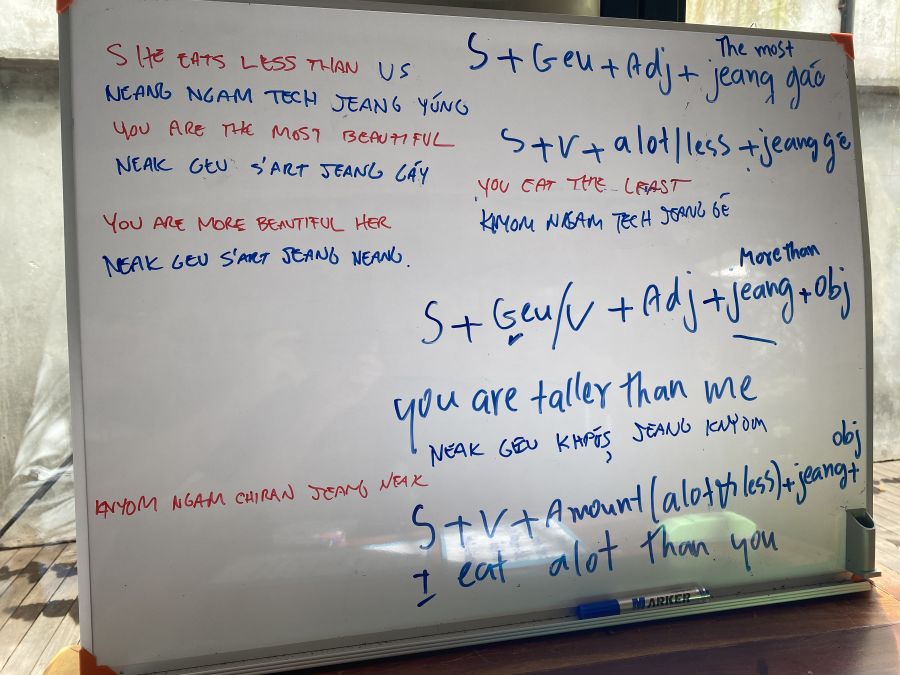 SHE EATS LESS THAN US
NEANG NGAM TECH JEANG YÚNG
YOU ARE THE MOST BEAUTIFUL
NEAK GEU S'ART JEANG GÁY
YOU ARE MORE BEAUTIFUL HER
NEAK GEU S'ART JEANG NEANG.
The most
S+Geu+Adj+jeang gáo
S+V+alot/less+jeang gé
YOU EAT THE LEAST
KNYOM NGAM TECH JEANG GÉ
More than
S+Geu/V+Adj+jeang+obj
you are taller than me
NEAK GEU KHPÓS, JEANG KNYOM
KNYOM NGAM CHIRAN JEANG NEAK
obj
S+V+Amount(alot less)+jeang+
I eat alot than you
MARKER